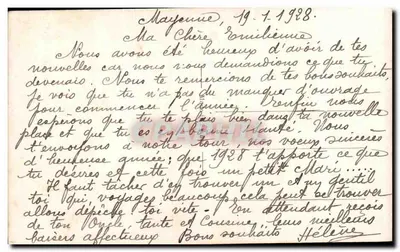 Mayenne, 19.1.1928.
Ma Chère Emilienne
Nous avons été heureux d'avoir de tes
nouvelles car nous nous demandions ce que tu
devenais. Nous te remercions de tes bons souhaits,
je vois que tu n'a pas du manquer d'ouvrage
pour commencer l'année. Enfin nous
espérons que tu te plais bien dans ta nouvelle
place et que tu es Nous
t'envoyons à notre tour, nos voeux sincères
d'heureuse année; que 1928 t'apporte ce que
tu désires et cette fois un petit Mari....
Il faut tacher d'en trouver un et gentil
toi qui voyages beaucoup, cela peut se trouver
allons dépêche toi vite. En attendant reçois
de ton Oncle, tante et Cousine leur meilleurs
baisers affectueux Bons souhaits Hélène